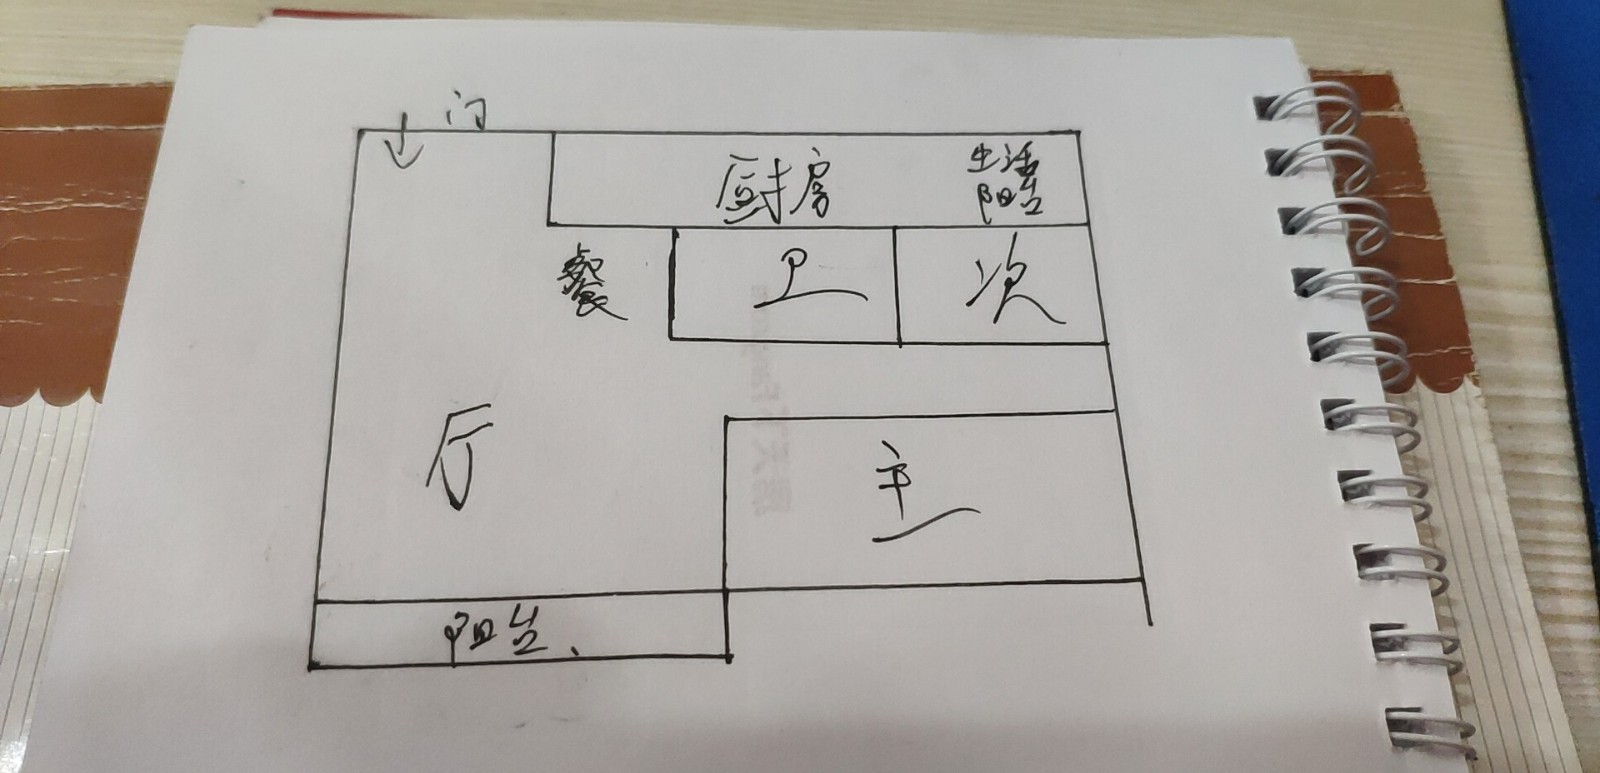 门
厨房
生活
阳台
餐
卫
次
厅
主
阳台